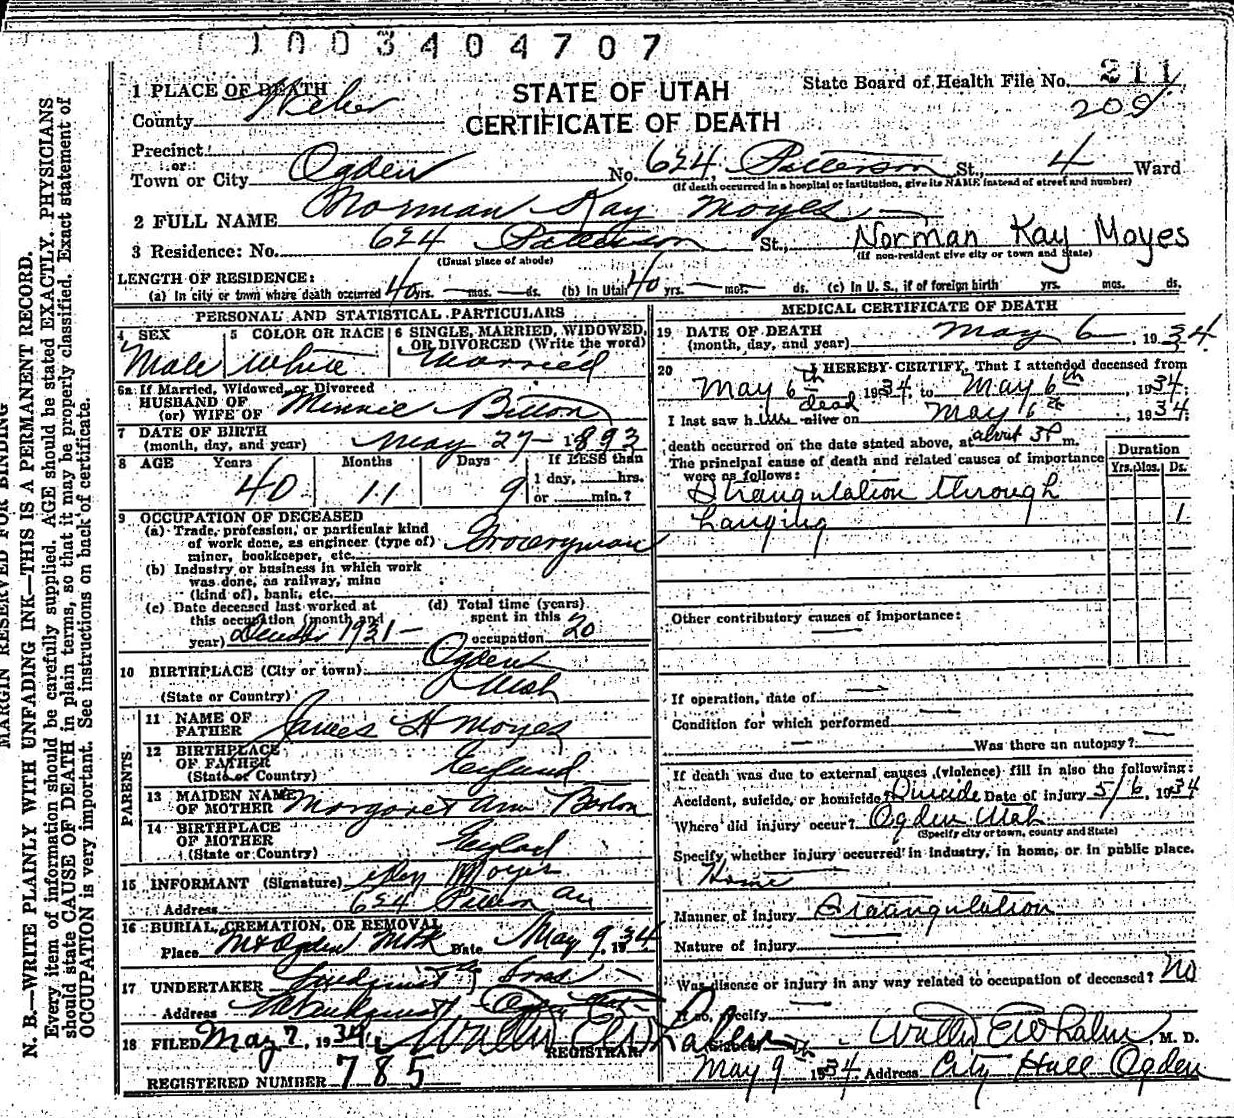 1003404707
1 PLACE OF DEATH
STATE OF UTAH
State Board of Health File No. 211
County Weber
CERTIFICATE OF DEATH
209
Precinct
or
Town or City Ogden No. 624 Patterson St., 4 Ward
(If death occurred in a hospital or institution, give its NAME instead of street and number)
2 FULL NAME Norman Kay Moyes
3 Residence: No. 624 Patterson St., Norman Kay Moyes
(Usual place of abode) (If non-resident give city or town and State)
LENGTH OF RESIDENCE:
(a) In city or town where death occurred 40 yrs. — mos. — ds. (b) In Utah 40 yrs. — mos. — ds. (c) In U. S., if of foreign birth yrs. mos. ds.
PERSONAL AND STATISTICAL PARTICULARS
4 SEX 5 COLOR OR RACE 6 SINGLE, MARRIED, WIDOWED, OR DIVORCED (Write the word)
Male White Married
6a If Married, Widowed, or Divorced
HUSBAND OF
(or) WIFE OF Minnie Bitton
7 DATE OF BIRTH
(month, day, and year) May 27 - 1893
8 AGE Years Months Days If LESS than
40 11 9 1 day, hrs.
or min.?
9 OCCUPATION OF DECEASED
(a) Trade, profession, or particular kind
of work done, as engineer (type of)
miner, bookkeeper, etc. Groceryman
(b) Industry or business in which work
was done, as railway, mine
(kind of), bank, etc.
(c) Date deceased last worked at (d) Total time (years)
this occupation (month and spent in this
year) 1931 - occupation 20
10 BIRTHPLACE (City or town) Ogden
(State or Country) Utah
PARENTS
11 NAME OF
FATHER James H Moyes
12 BIRTHPLACE
OF FATHER
(State or Country) England
13 MAIDEN NAME
OF MOTHER Margaret Ann
14 BIRTHPLACE
OF MOTHER
(State or Country) England
15 INFORMANT (Signature) Moyes
Address 624
16 BURIAL, CREMATION, OR REMOVAL
Place Mt Ogden Date May 9, 1934
17 UNDERTAKER
Address
18 FILED May 7, 1934
REGISTRAR
REGISTERED NUMBER 785
MEDICAL CERTIFICATE OF DEATH
19 DATE OF DEATH
(month, day, and year) May 6, 1934
20 I HEREBY CERTIFY, That I attended deceased from
May 6th 1934, to May 6th, 1934
dead
I last saw him alive on May 6th, 1934
death occurred on the date stated above, at about 3P m.
The principal cause of death and related causes of importance
were as follows:
Duration
Yrs. Mos. Ds.
Strangulation through
hanging 1
Other contributory causes of importance:
If operation, date of
Condition for which performed
Was there an autopsy?
If death was due to external causes (violence) fill in also the following:
Accident, suicide, or homicide? Suicide Date of injury 5/6, 1934
Where did injury occur? Ogden Utah
(Specify city or town, county and State)
Specify whether injury occurred in industry, in home, or in public place.
Home
Manner of injury Strangulation
Nature of injury
Was disease or injury in any way related to occupation of deceased? No
If so, specify
Signed M. D.
May 9 1934 Address City Hall Ogden
MARGIN RESERVED FOR BINDING
N. B.—WRITE PLAINLY WITH UNFADING INK—THIS IS A PERMANENT RECORD.
Every item of information should be carefully supplied. AGE should be stated EXACTLY. PHYSICIANS
should state CAUSE OF DEATH in plain terms, so that it may be properly classified. Exact statement of
OCCUPATION is very important. See instructions on back of certificate.